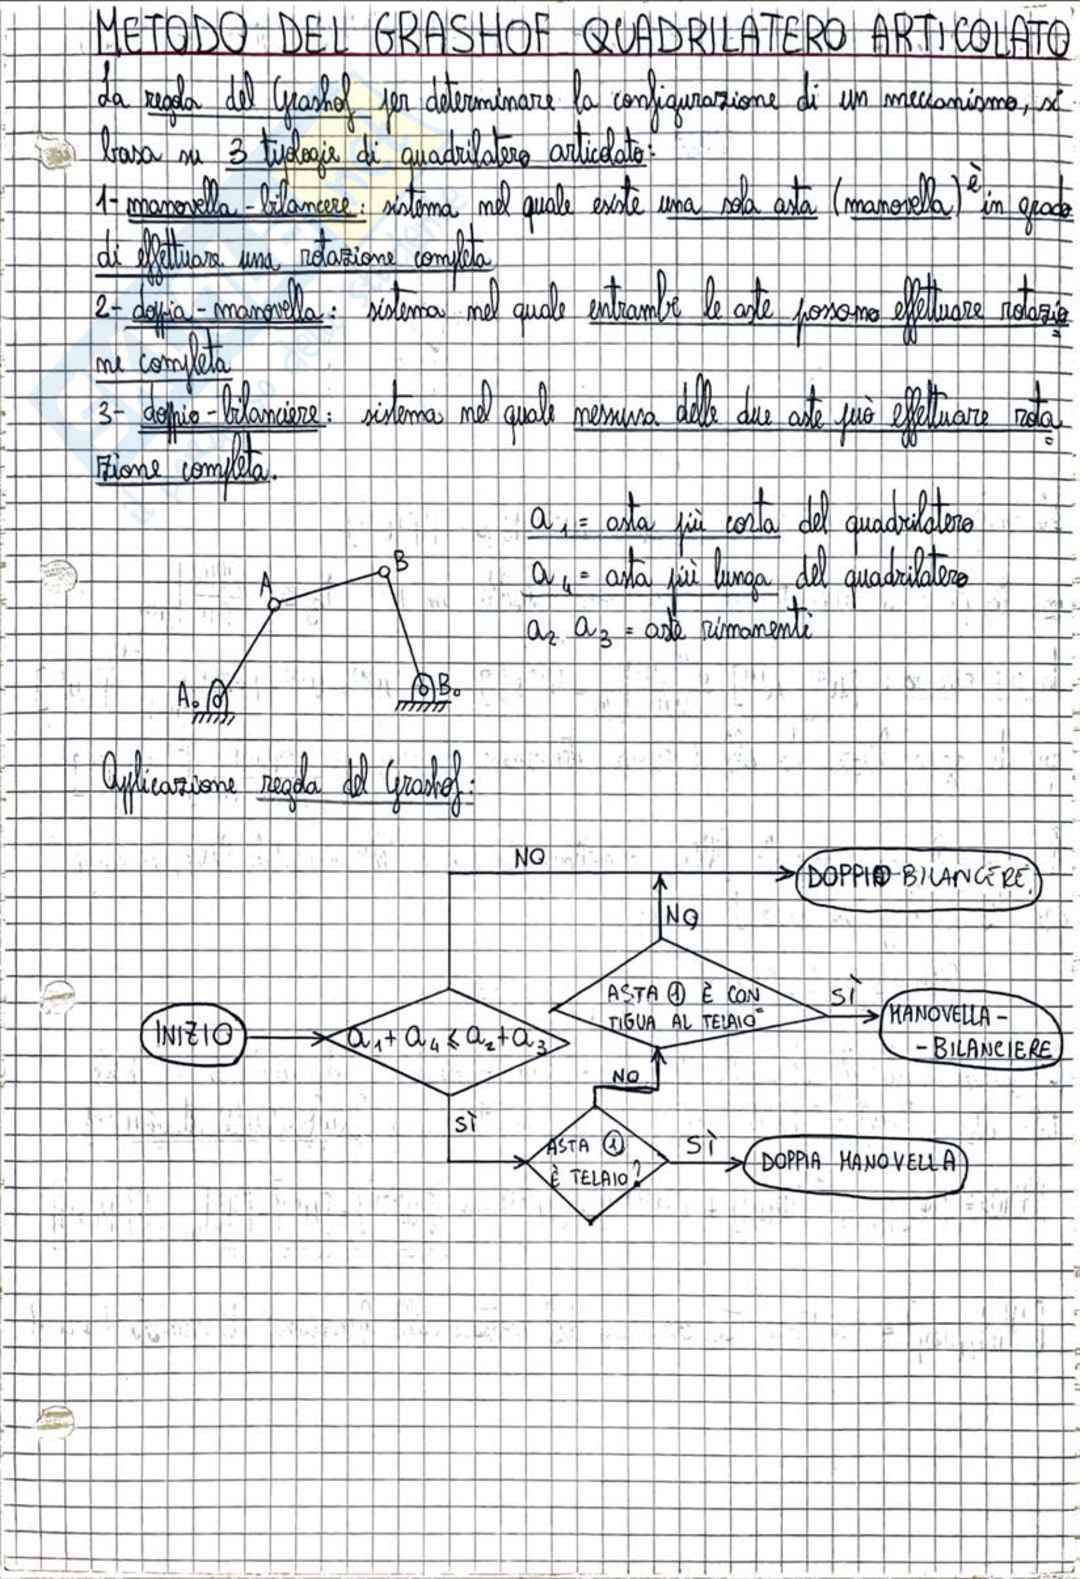 METODO DEL GRASHOF QUADRILATERO ARTICOLATO
La regola del Grashof per determinare la configurazione di un meccanismo, si
basa su 3 tipologie di quadrilatero articolato:
1- manovella - bilancere: sistema nel quale esiste una sola asta (manovella) è in grado
di effettuare una rotazione completa
2- doppia - manovella: sistema nel quale entrambe le aste possono effettuare rotazio=
ne completa
3- doppio - bilanciere: sistema nel quale nessuna delle due aste può effettuare rota=
zione completa.
a₁ = asta più corta del quadrilatero
a₄ = asta più lunga del quadrilatero
a₂ a₃ = aste rimanenti
A
B
A₀
B₀
Applicazione regola del Grashof:
NO
DOPPIO BILANCERE
NO
ASTA ① È CON
TIGUA AL TELAIO=
SÌ
MANOVELLA -
- BILANCIERE
INIZIO
a₁ + a₄ ≤ a₂ + a₃
NO
SÌ
ASTA ①
È TELAIO?
SÌ
DOPPIA MANOVELLA